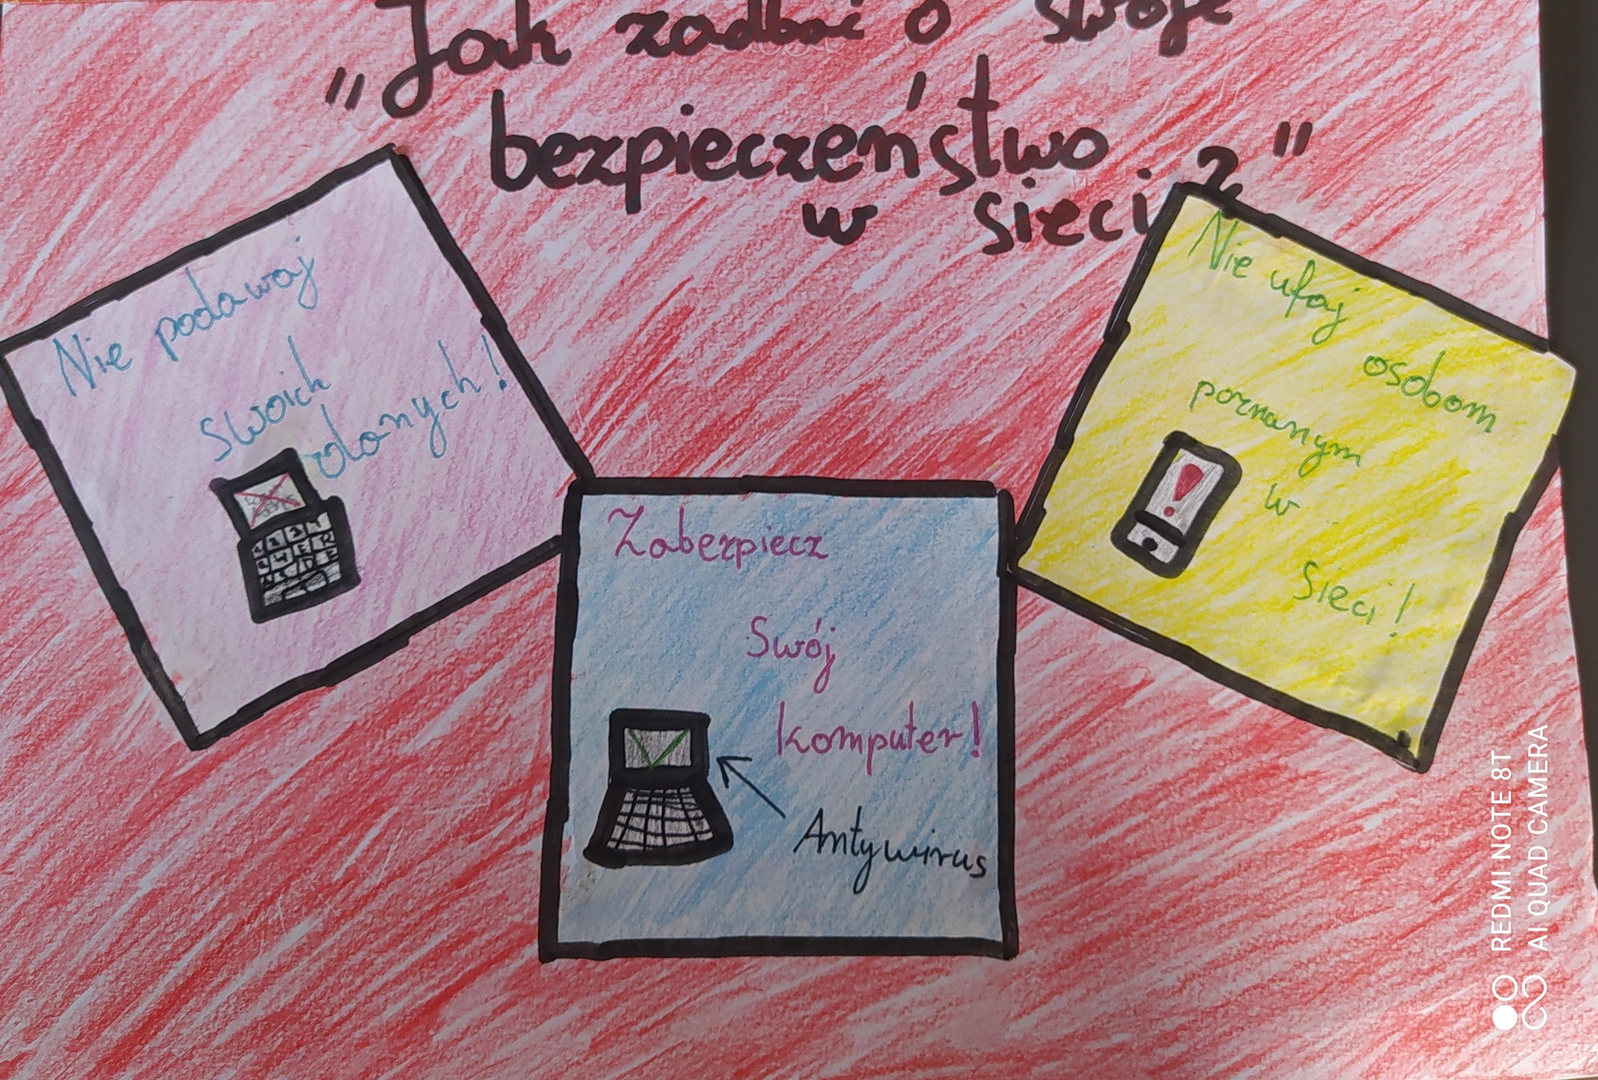 „Jak zadbać o swoje
bezpieczeństwo
w sieci?”
Nie podawaj
swoich
danych!
Zabezpiecz
Swój
komputer!
Antywirus
Nie ufaj
osobom
poznanym
w
Sieci!
REDMI NOTE 8T
AI QUAD CAMERA